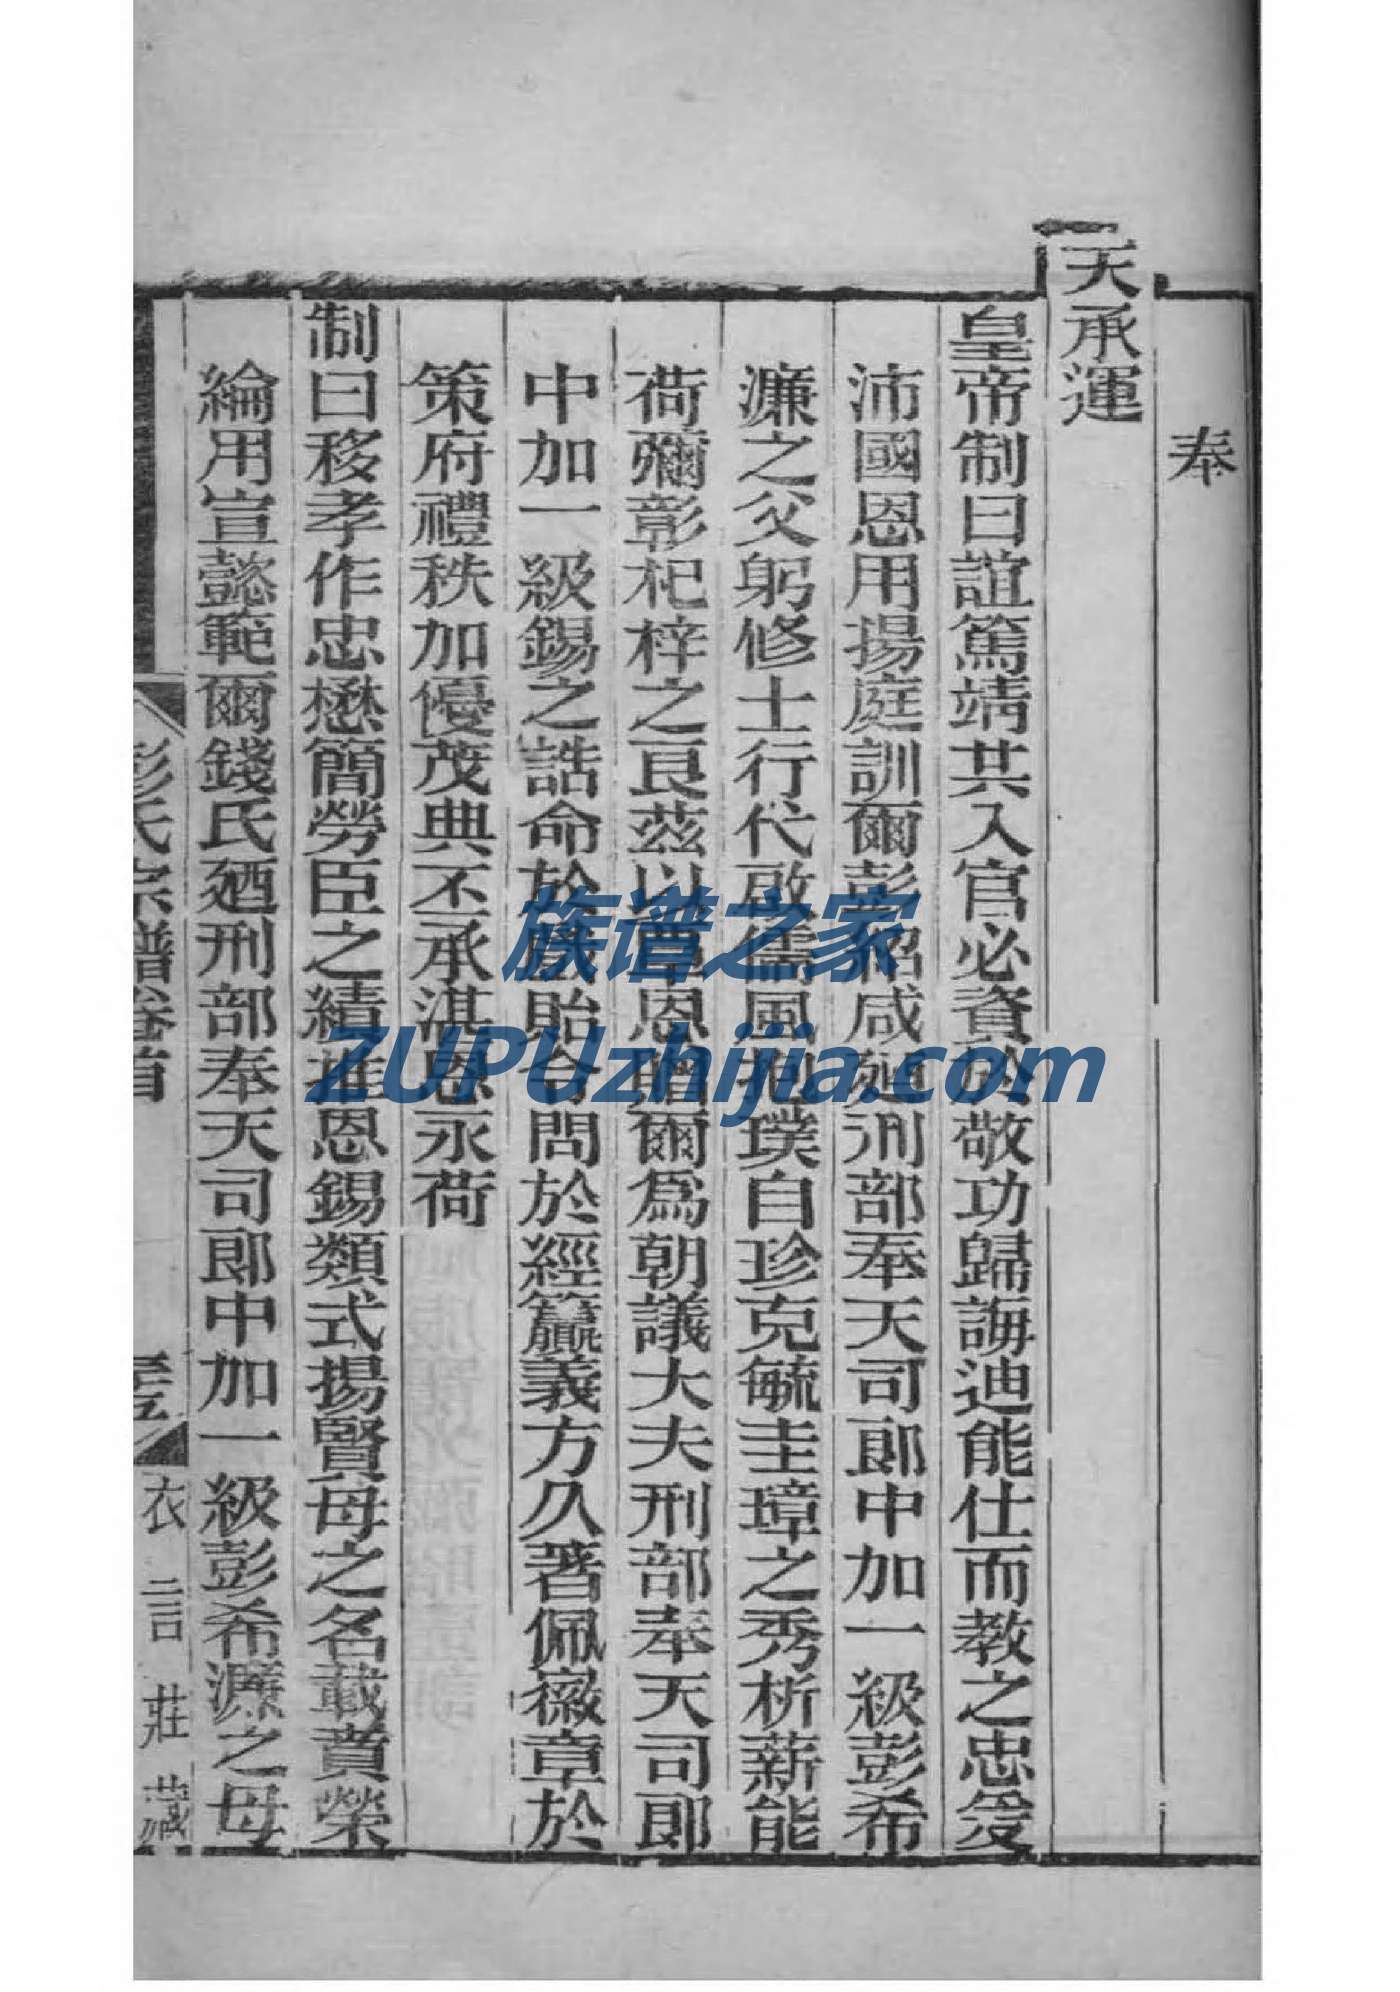 奉
天承運
皇帝制曰誼篤靖共入官必資於敬功歸誨迪能仕而教之忠爰
沛國恩用揚庭訓爾彭紹咸廼刑部奉天司郎中加一級彭希
濂之父躬修士行代啟儒風抱璞自珍克毓圭璋之秀析薪能
荷彌彰杞梓之良茲以覃恩贈爾爲朝議大夫刑部奉天司郎
中加一級錫之誥命於戲貽令問於經籯義方久著佩徽章於
策府禮秩加優茂典丕承湛恩永荷
制曰移孝作忠懋簡勞臣之績推恩錫類式揚賢母之名載賁榮
綸用宣懿範爾錢氏廼刑部奉天司郎中加一級彭希濂之母
彭氏宗譜卷首
衣言莊藏
族谱之家
ZUPUzhijia.com